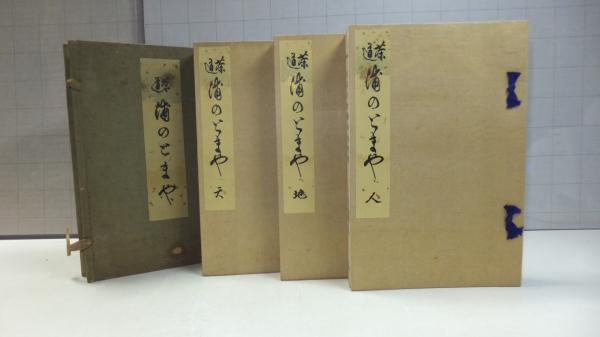 茶道 浦のとまや
茶道 浦のとまや 天
茶道 浦のとまや 地
茶道 浦のとまや 人